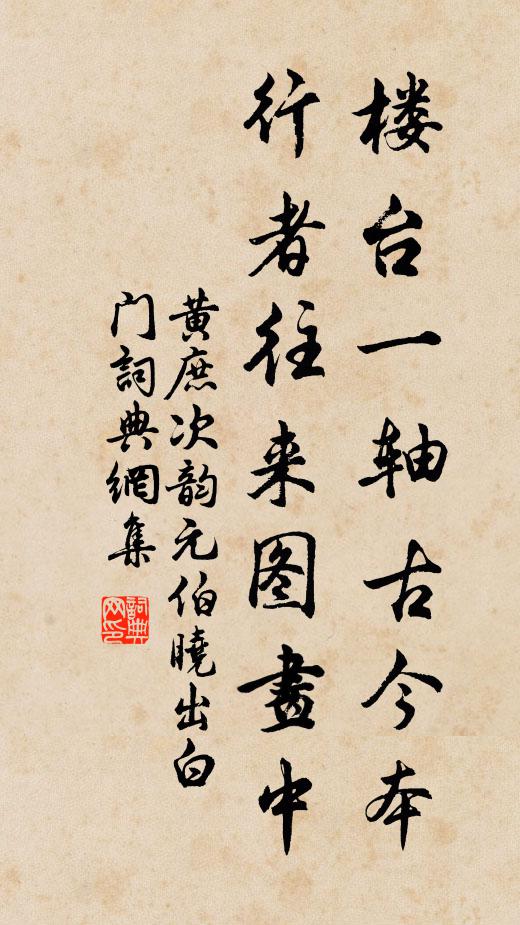 楼台一轴古今本
行者往来图畫中
黃庶次韵元伯曉出白
门詞典網集
詞典网印